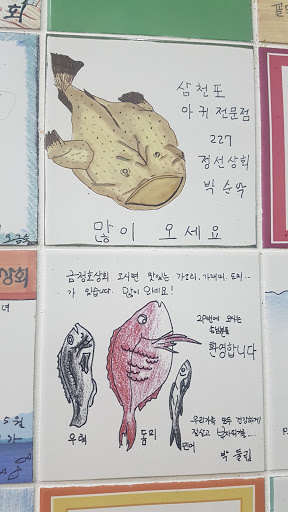 회
삼천포
아귀 전문점
227
정선상회
박순악
많이 오세요
상회
금정호상회 오시면 맛있는 가오리, 가재미, 도미..
가 있습니다. 많이 오세요!
오시는
환영합니다
우리가족 모두 건강하게
우럭
돔미
민어
박둘림
5월